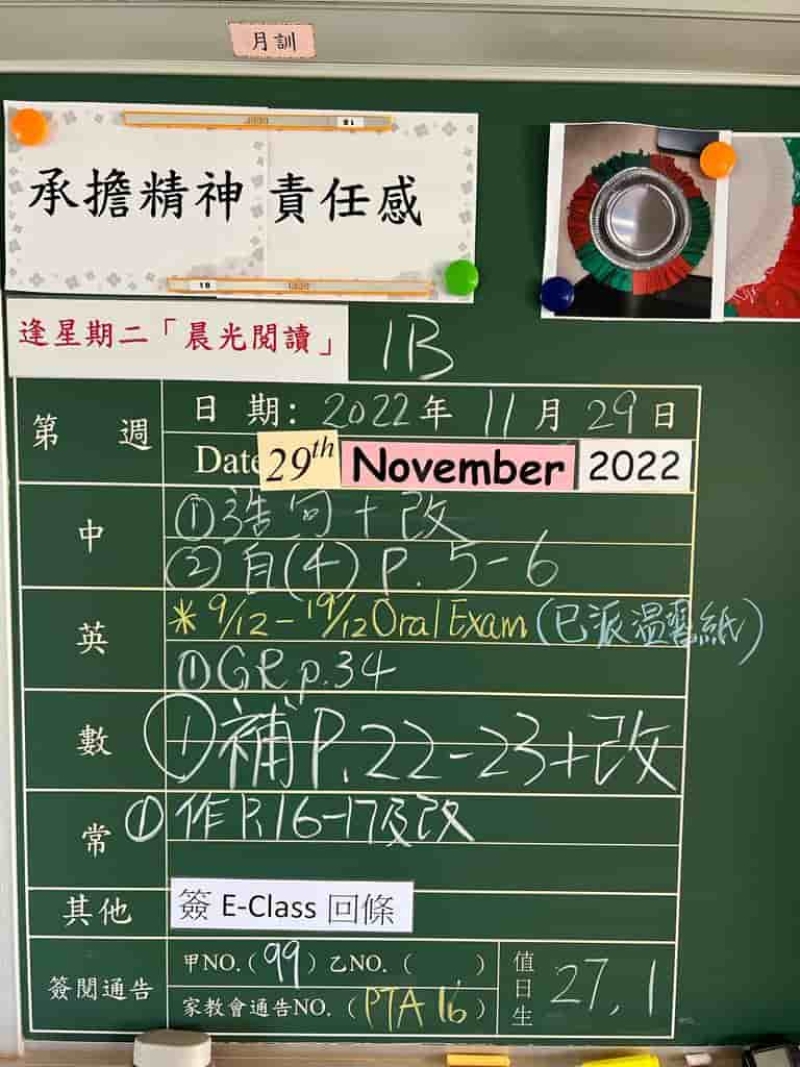 月訓
承擔精神 責任感
逢星期二「晨光閱讀」
1B
第 週
日 期: 2022年 11月 29日
Date 29th November 2022
中
①造句+改
②自(4) P. 5-6
英
*9/12-19/12 Oral Exam (已派温習紙)
①GR p.34
數
①補P.22-23+改
常
①作P.16-17及改
其他
簽 E-Class 回條
簽閱通告
甲NO.(99) 乙NO.( )
家教會通告NO.(PTA 16)
值日生
27, 1